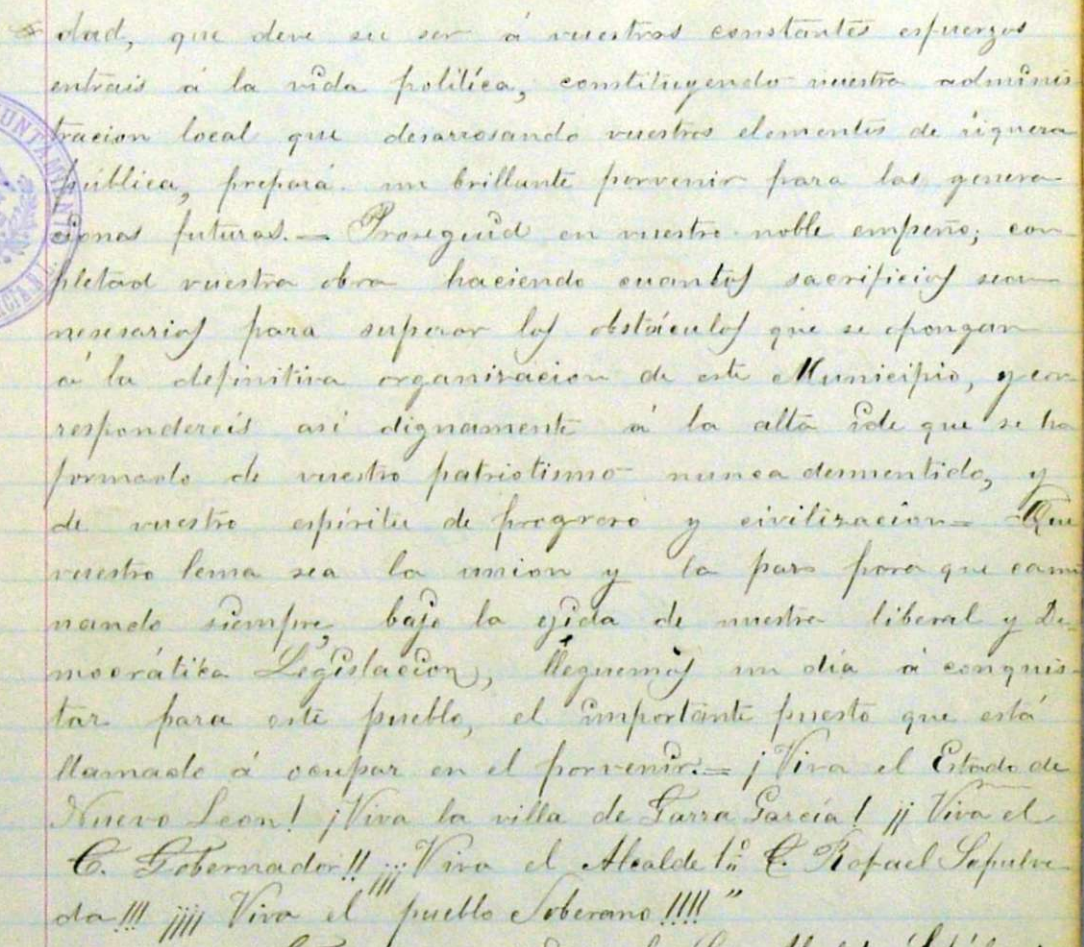 dad, que deve su ser á vuestros constantes esfuerzos
entrais á la vida política, constituyendo vuestra adminis
tracion local que desarrosando vuestros elementos de riquera
pública, prepara un brillante porvenir para las genera
cionas futuras.— Proseguid en vuestro noble empeño; com
pletad vuestra obra haciendo cuantos sacrificios sean
nesesarios para superar los obstáculos que se opongan
á la definitiva organizacion de este Municipio, y cor
respondereís asi dignamente á la alta ide que se ha
formado de vuestro patriotismo nunca desmentido, y
de vuestro espíritu de progreso y civilizacion— Que
vuestro lema sea la union y la paz para que cami
nando siempre, bajo la egida de nuestra liberal y De-
mocrátika Legislacion, lleguemos un día á conquis-
tar para este pueblo, el importante puesto que está
llamado á ocupar en el porvenir.= ¡Viva el Estado de
Nuevo Leon! ¡Viva la villa de Garza García! ¡¡Viva el
C. Gobernador!! ¡¡¡Viva el Alcalde 1º C. Rafael Sepulve-
da!!! ¡¡¡¡Viva el pueblo Soberano!!!!"